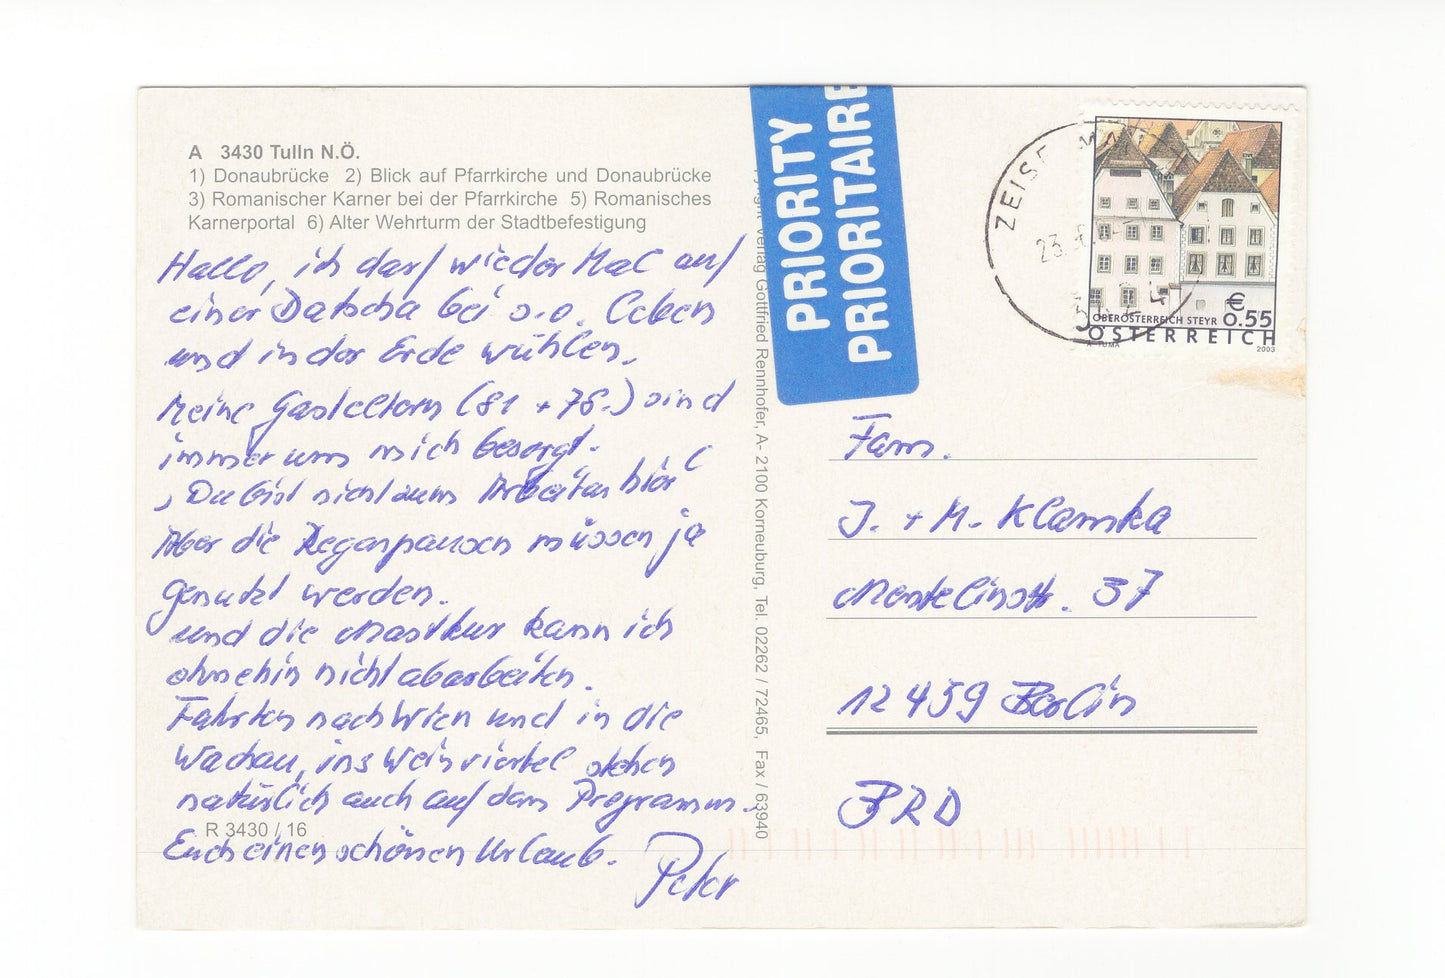 A 3430 Tulln N.Ö.
1) Donaubrücke 2) Blick auf Pfarrkirche und Donaubrücke
3) Romanischer Karner bei der Pfarrkirche 5) Romanisches
Karnerportal 6) Alter Wehrturm der Stadtbefestigung
Hallo, ich darf wieder Mal auf
einer Datscha bei s.o. Leben
und in der Erde wühlen.
Meine Gasteltern (81 + 78.) sind
immer um mich besorgt.
"Du bist nicht zum Arbeiten hier"
Aber die Regenpausen müssen ja
genutzt werden.
und die Mastkur kann ich
ohnehin nicht abarbeiten.
Fahrten nach Wien und in die
Wachau, ins Weinviertel stehen
natürlich auch auf dem Programm.
R 3430 / 16
Euch einen schönen Urlaub.
Peter
Verlag Gottfried Rennhofer, A- 2100 Korneuburg, Tel. 02262 / 72465, Fax / 63940
PRIORITY
PRIORITAIRE
ZEISE
23.
€
OBERÖSTERREICH STEYR 0.55
ÖSTERREICH
A. TUMA 2003
Fam.
J. + M. Klamka
12459 Berlin
BRD